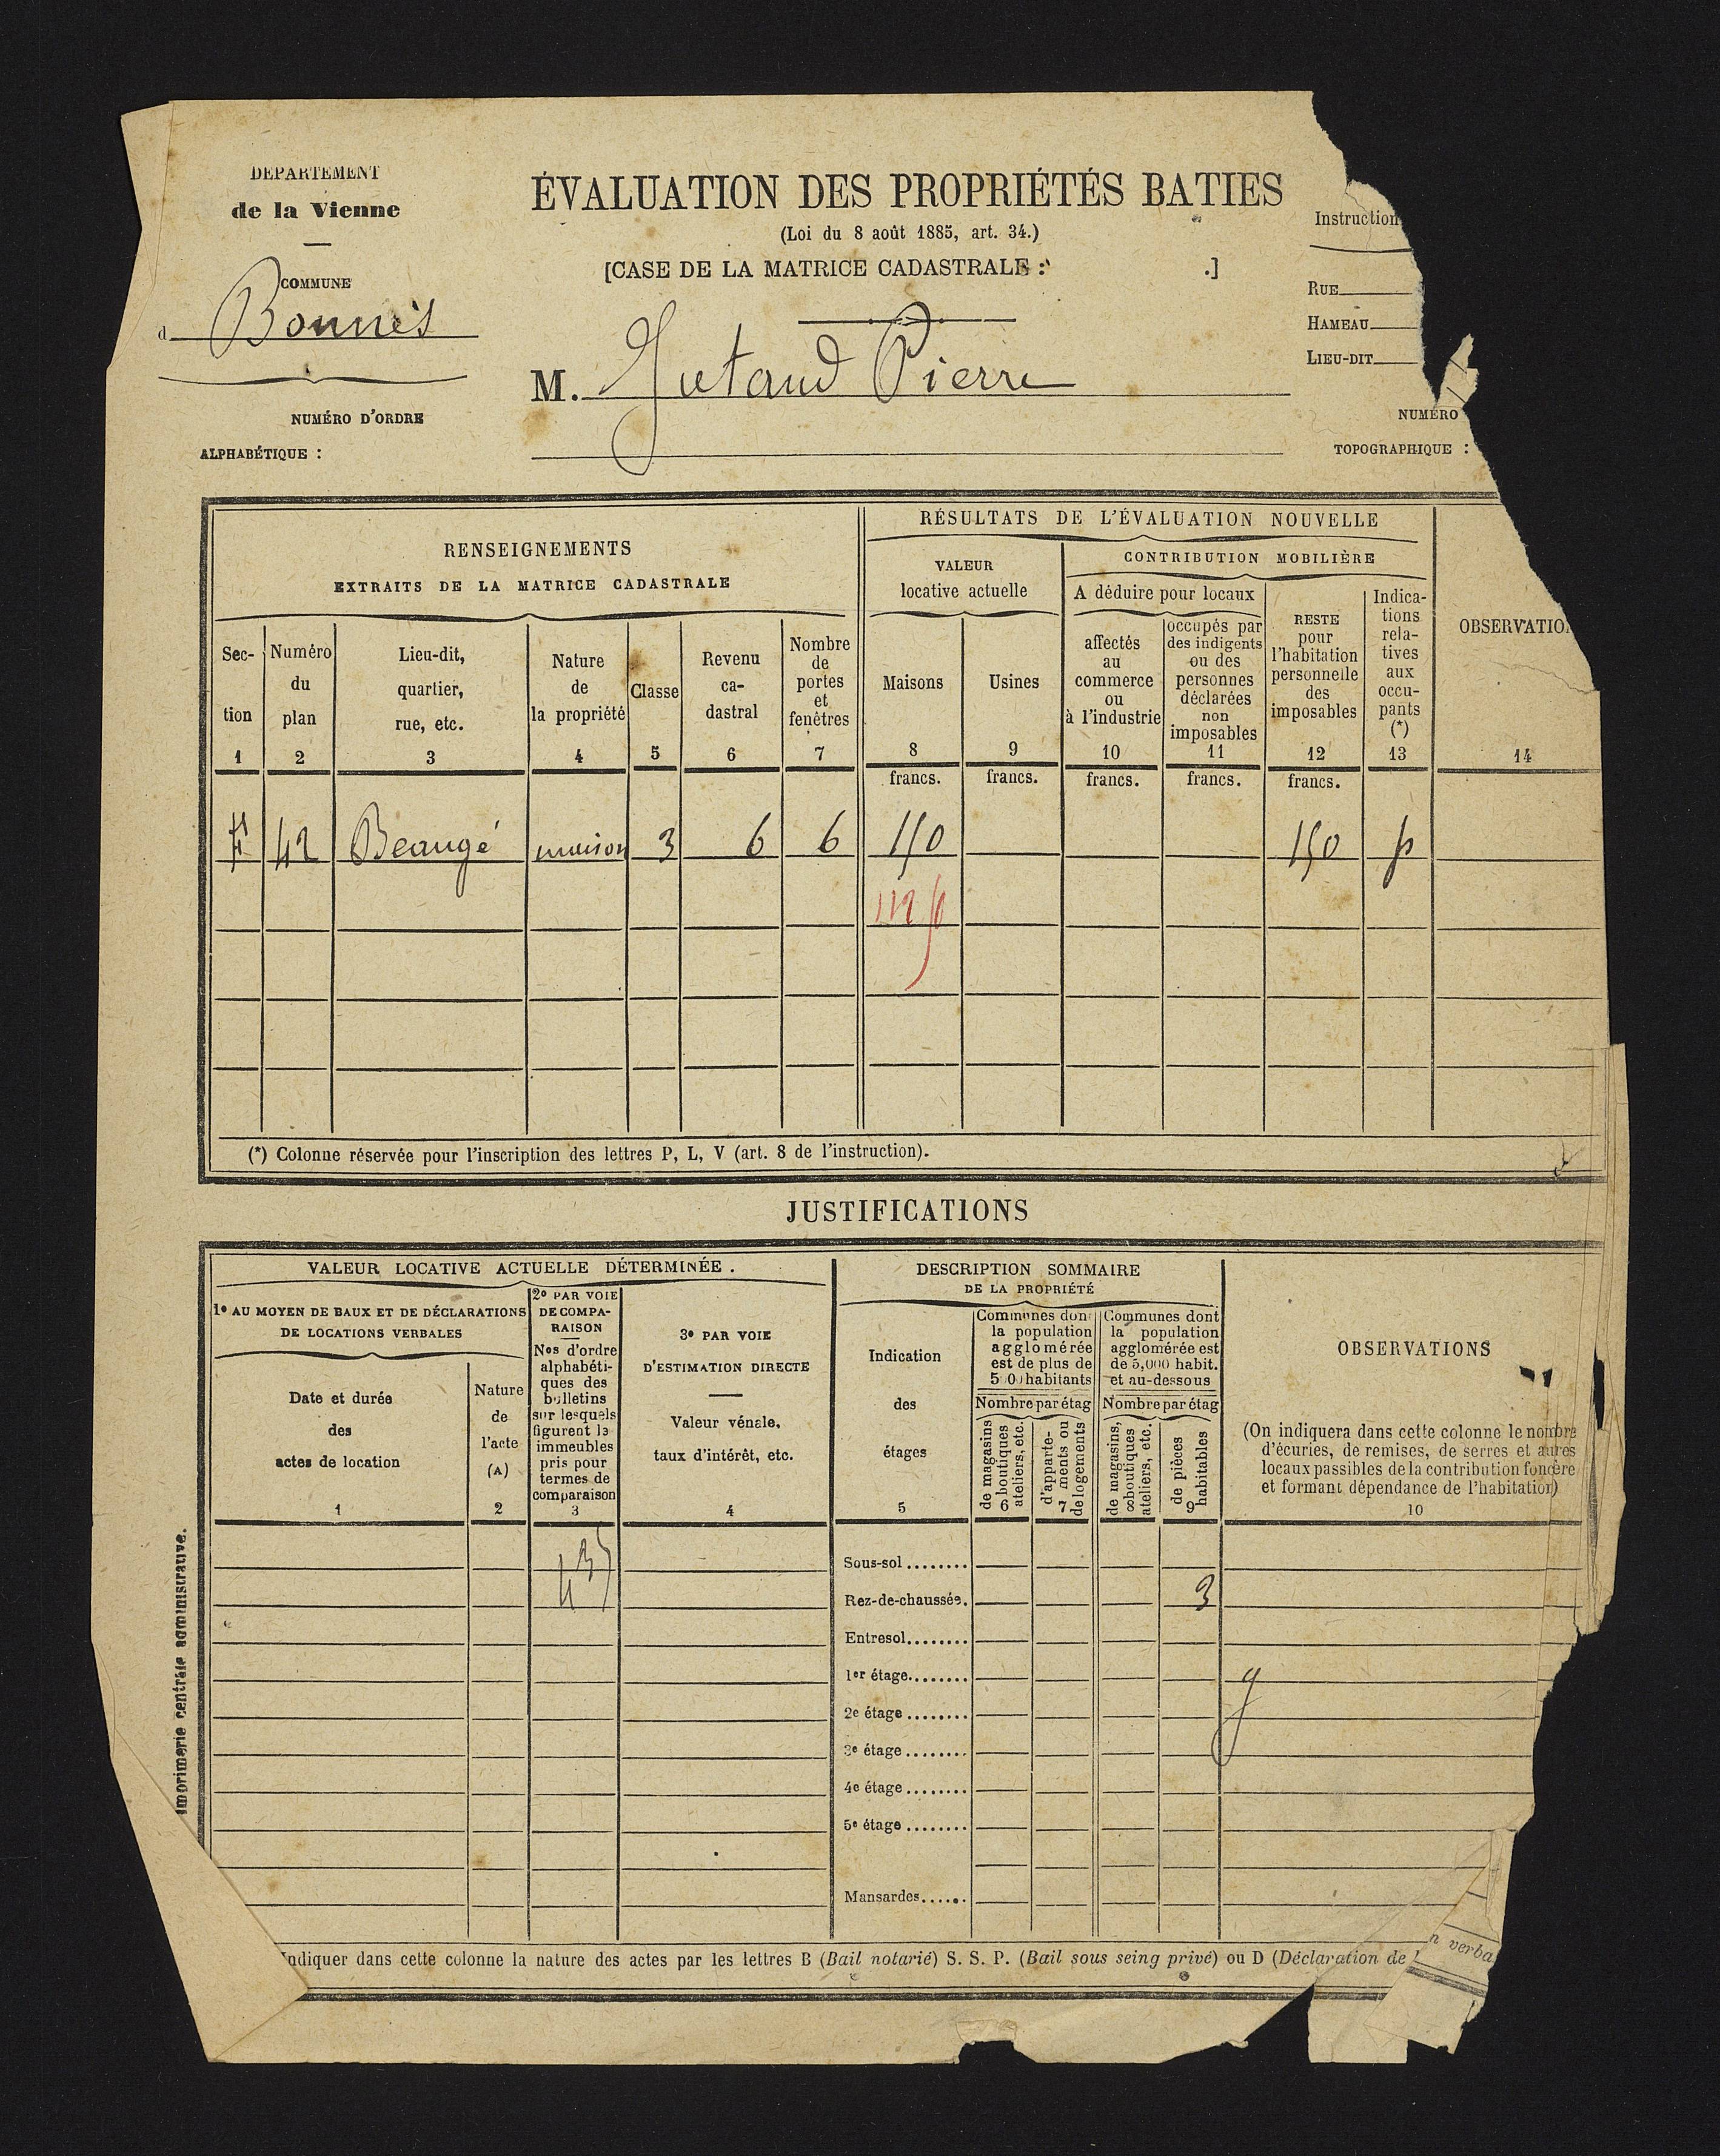 DÉPARTEMENT
de la Vienne
COMMUNE
d Bonnes
NUMÉRO D'ORDRE
ALPHABÉTIQUE :
ÉVALUATION DES PROPRIÉTÉS BATIES
(Loi du 8 août 1885, art. 34.)
[CASE DE LA MATRICE CADASTRALE : .]
M. Pierre
Instruction
RUE
HAMEAU
LIEU-DIT
NUMÉRO
TOPOGRAPHIQUE :
RENSEIGNEMENTS
EXTRAITS DE LA MATRICE CADASTRALE
RÉSULTATS DE L'ÉVALUATION NOUVELLE
VALEUR
locative actuelle
CONTRIBUTION MOBILIÈRE
A déduire pour locaux
Sec-
tion
1
Numéro
du
plan
2
Lieu-dit,
quartier,
rue, etc.
3
Nature
de
la propriété
4
Classe
5
Revenu
ca-
dastral
6
Nombre
de
portes
et
fenêtres
7
Maisons
8
Usines
9
affectés
au
commerce
ou
à l'industrie
10
occupés par
des indigents
ou des
personnes
déclarées
non
imposables
11
RESTE
pour
l'habitation
personnelle
des
imposables
12
Indica-
tions
rela-
tives
aux
occu-
pants
(*)
13
OBSERVATIO
14
francs. francs. francs. francs. francs.
F 42 Beaugé maison 3 6 6 150 150 p
(*) Colonne réservée pour l'inscription des lettres P, L, V (art. 8 de l'instruction).
JUSTIFICATIONS
VALEUR LOCATIVE ACTUELLE DÉTERMINÉE.
1° AU MOYEN DE BAUX ET DE DÉCLARATIONS
DE LOCATIONS VERBALES
Date et durée
des
actes de location
1
Nature
de
l'acte
(A)
2
2° PAR VOIE
DE COMPA-
RAISON
Nos d'ordre
alphabéti-
ques des
bulletins
sur lesquels
figurent les
immeubles
pris pour
termes de
comparaison
3
3° PAR VOIE
D'ESTIMATION DIRECTE
Valeur vénale,
taux d'intérêt, etc.
4
DESCRIPTION SOMMAIRE
DE LA PROPRIÉTÉ
Indication
des
étages
5
Communes don
la population
agglomérée
est de plus de
5 0 habitants
Nombre par étag
de magasins
boutiques
ateliers, etc.
6
d'apparte-
ments ou
de logements
7
Communes dont
la population
agglomérée est
de 5,000 habit.
et au-dessous
Nombre par étag
de magasins,
boutiques
ateliers, etc.
8
de pièces
habitables
9
OBSERVATIONS
(On indiquera dans cette colonne le nombre
d'écuries, de remises, de serres et autres
locaux passibles de la contribution foncière
et formant dépendance de l'habitation)
10
435
Sous-sol ........
Rez-de-chaussée. 3
Entresol........
1er étage........
2e étage ........
3e étage ........
4e étage ........
5e étage ........
Mansardes......
Indiquer dans cette colonne la nature des actes par les lettres B (Bail notarié) S. S. P. (Bail sous seing privé) ou D (Déclaration de l
n verba
Imprimerie centrale administrative.